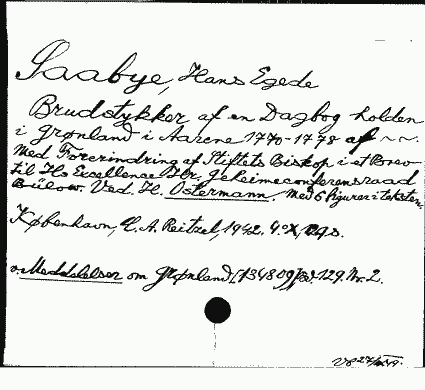 Saabye, Hans Egede
Brudstykker af en Dagbog holden
i Grønland i Aarene 1770-1778 af ~~.
Med Forerindring af Stiftets Biskop i et Brev
til Hs Excellence Hr. Geheimeconferensraad
Bülow. Ved H. Ostermann. Med 6 figurer i teksten.
København, C. A. Reitzel, 1942. 4°.
Meddelelser om Grønland, (134809) Bd. 129. Nr. 2.